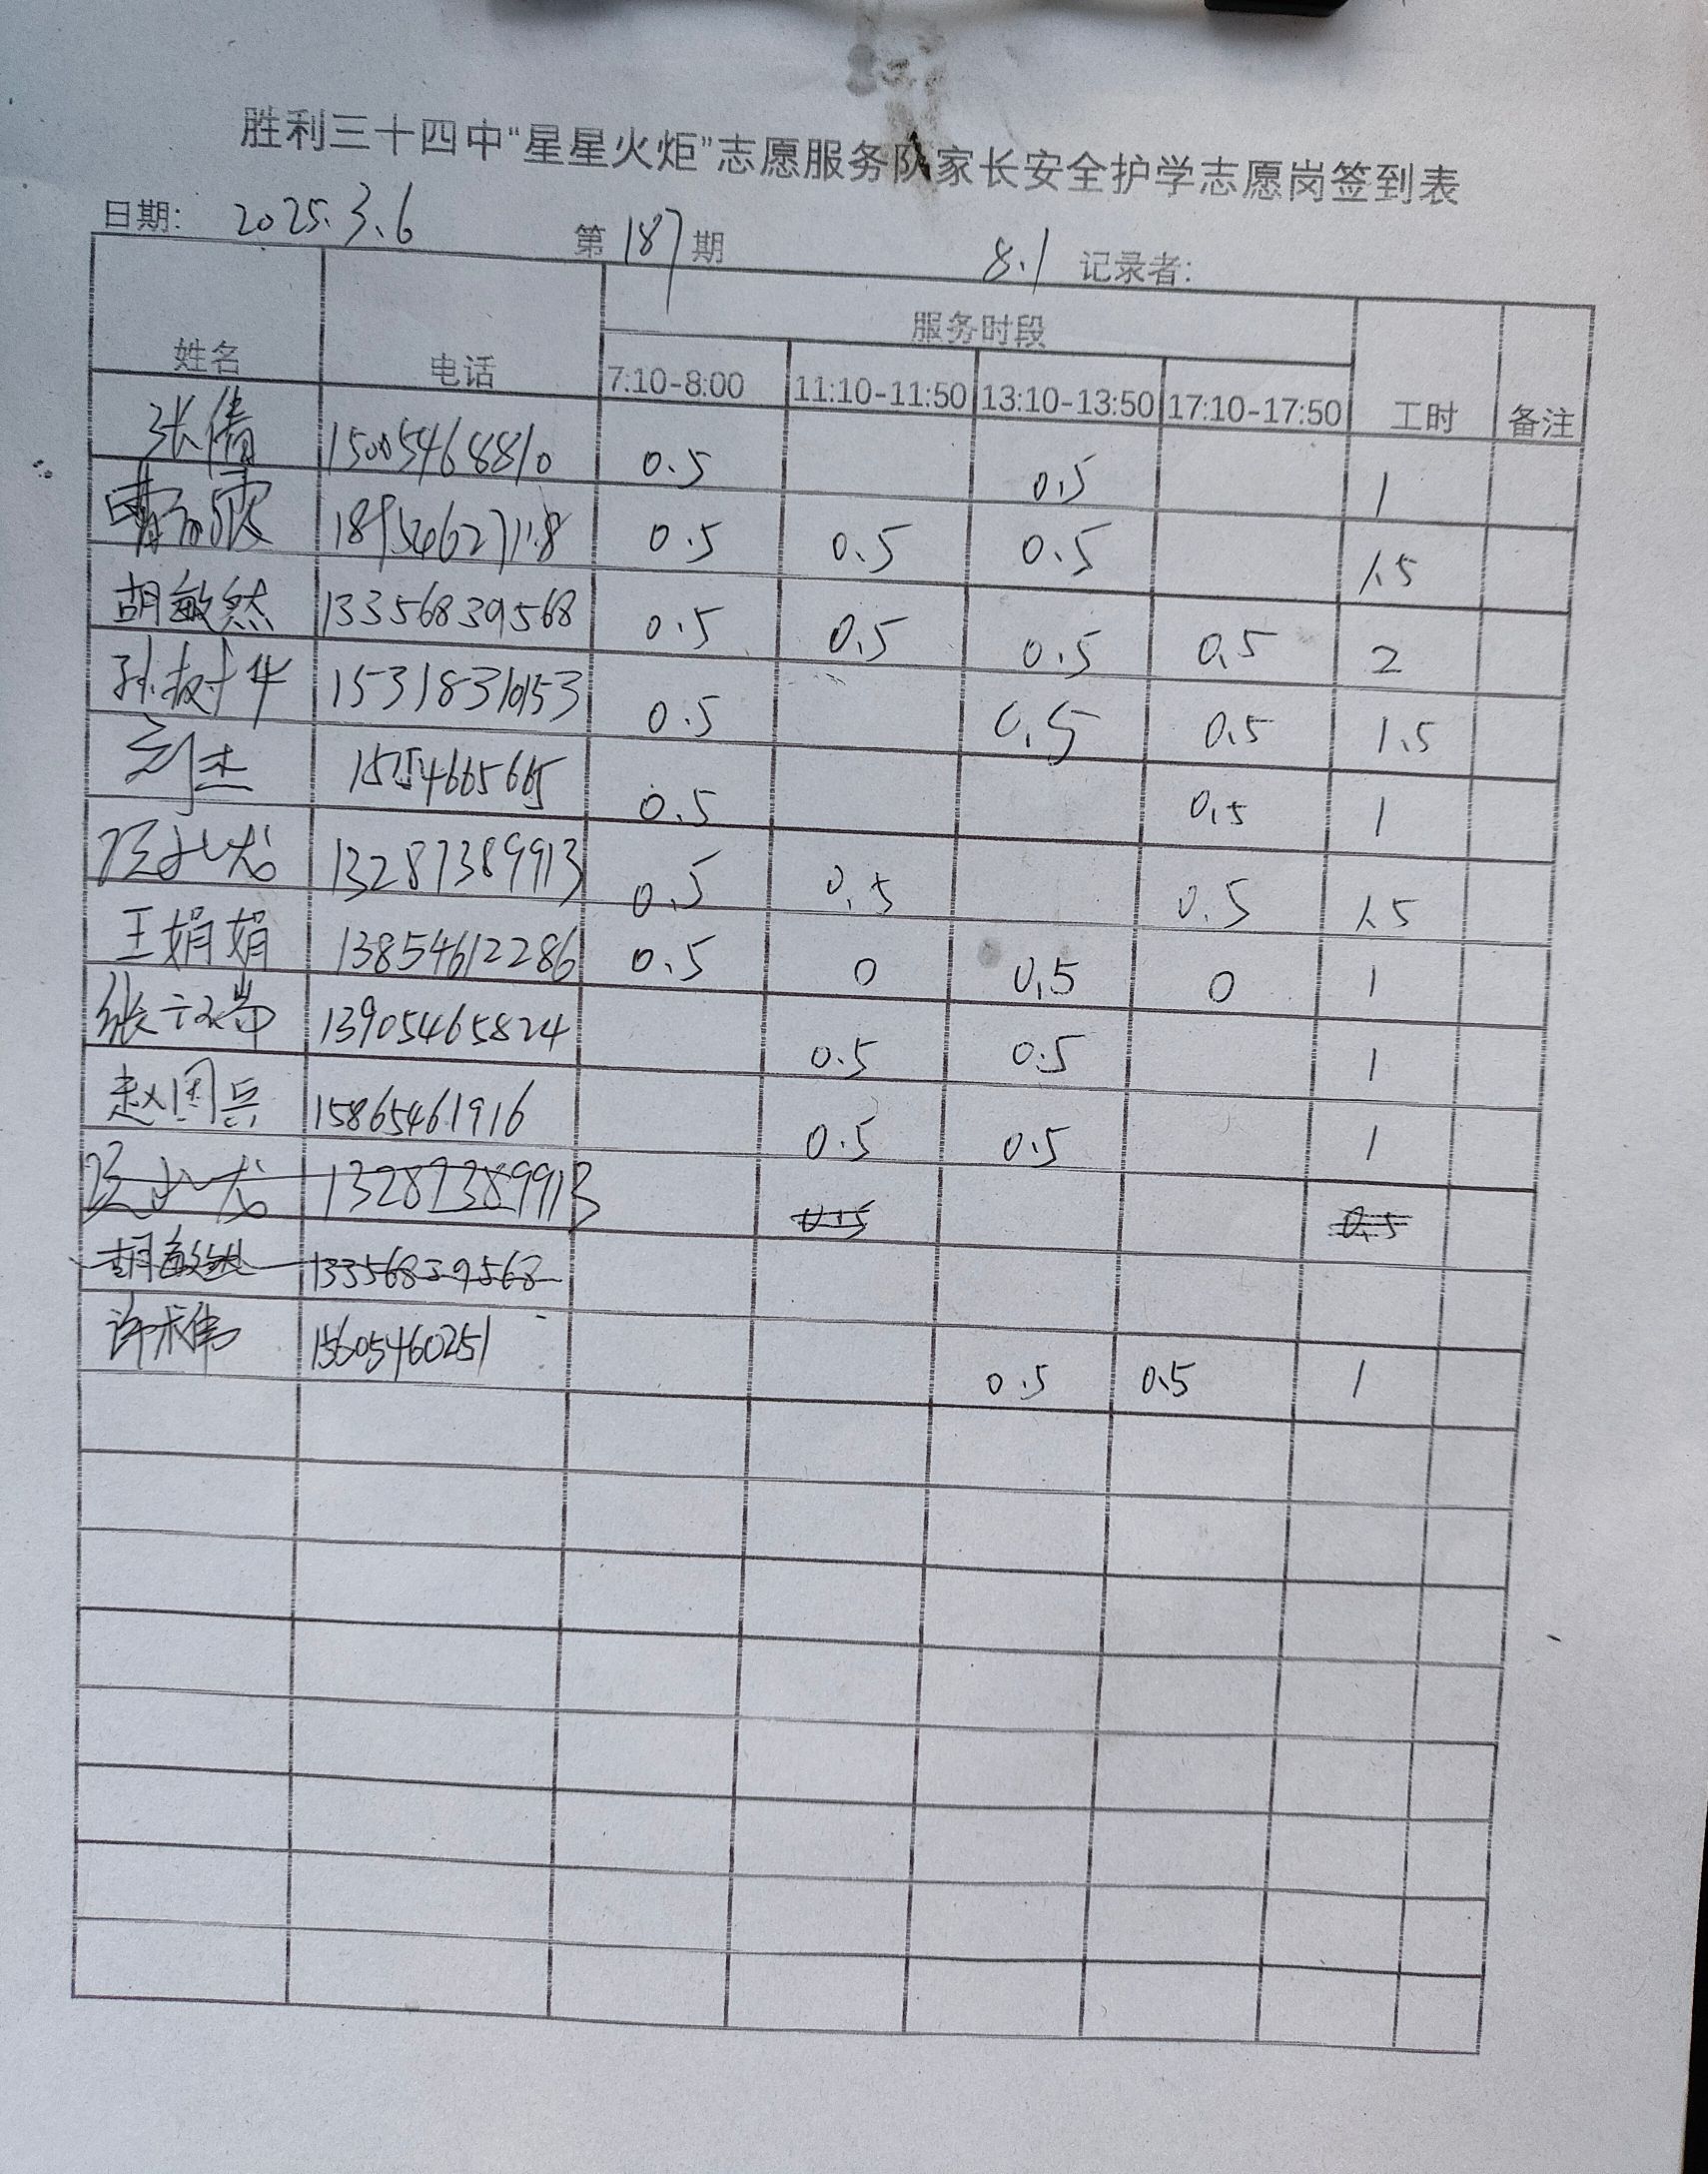 胜利三十四中“星星火炬”志愿服务队家长安全护学志愿岗签到表
日期: 2025.3.6 第 187 期 8.1 记录者:
姓名 电话 服务时段 工时 备注
7:10-8:00 11:10-11:50 13:10-13:50 17:10-17:50
张倩 15005468810 0.5 0.5 1
曹 18954627118 0.5 0.5 0.5 1.5
胡敏然 13356839568 0.5 0.5 0.5 0.5 2
孙树华 15318310153 0.5 0.5 0.5 1.5
刘杰 0.5 0.5 1
13287389913 0.5 0.5 0.5 1.5
王娟娟 13854612286 0.5 0 0.5 0 1
张 13905465824 0.5 0.5 1
赵国兵 15865461916 0.5 0.5 1
13287389913 0.5 0.5
胡敏然 13356839568
许伟 15605460251 0.5 0.5 1